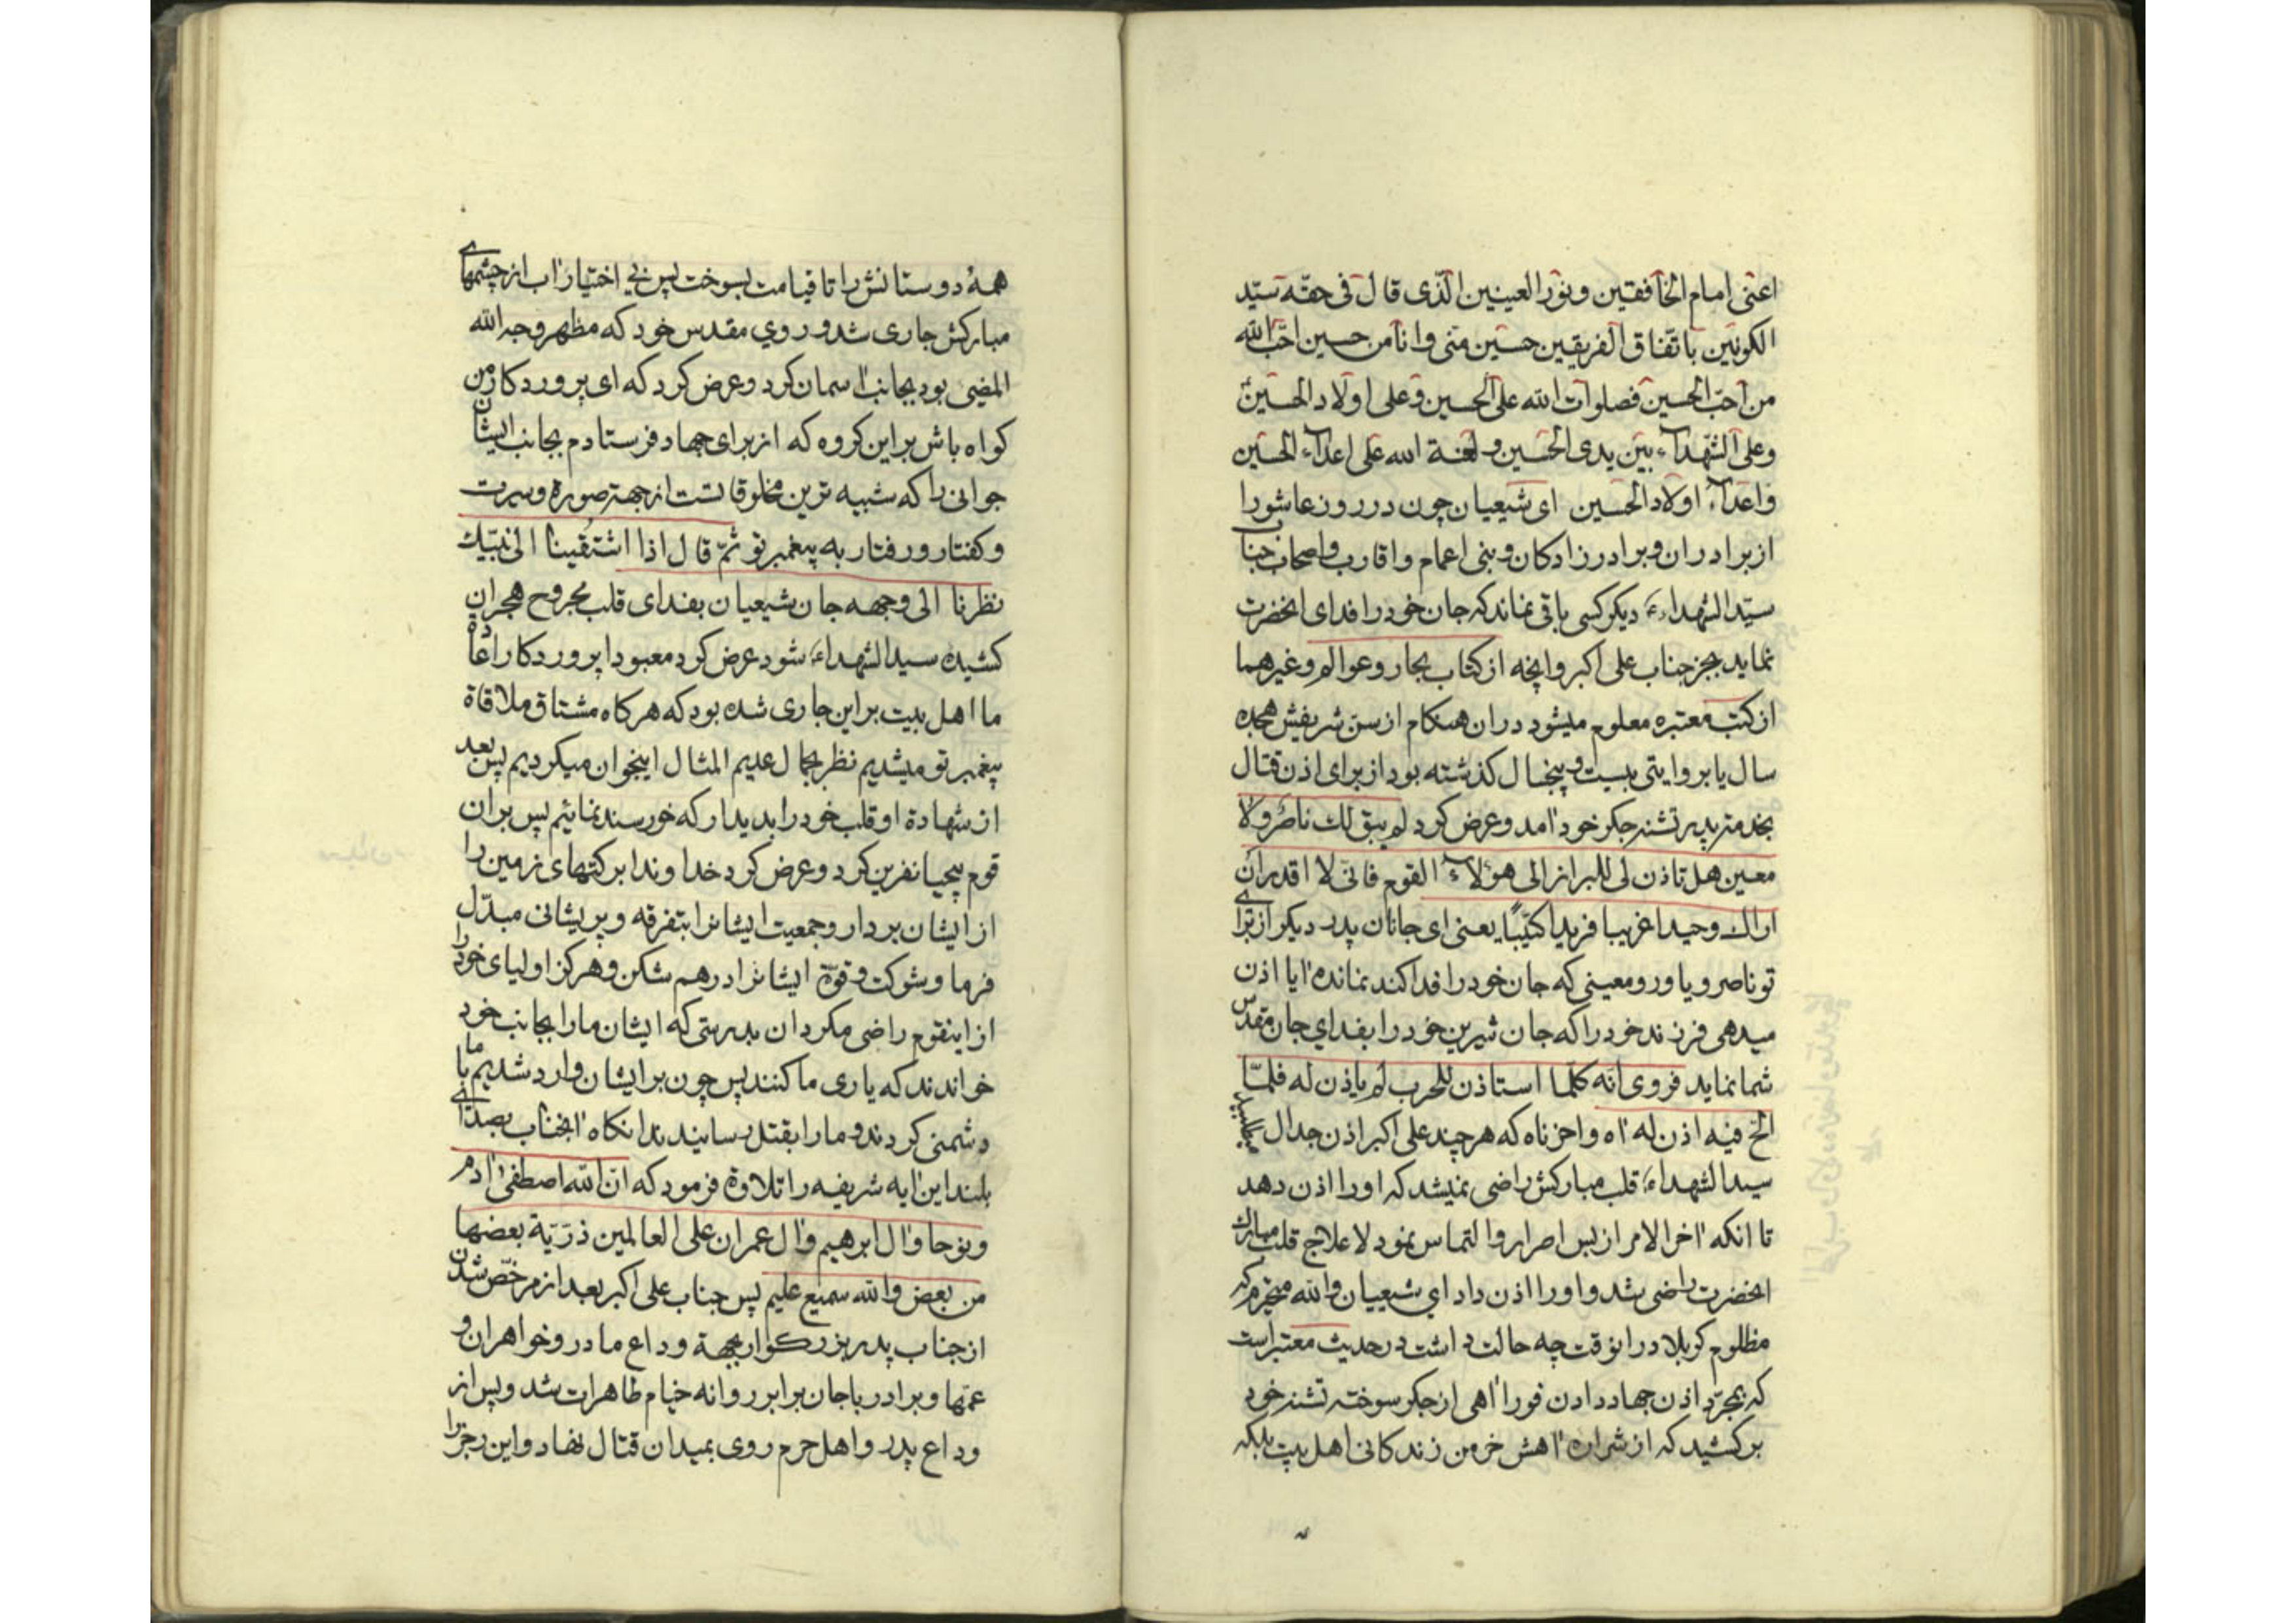 اعنی امام الخافقین ونور العینین الّذی قال فی حقّه سیّد
الکونین باتفاق الفریقین حسین منّی وانا من حسین احبّ الله
من احبّ الحسین فصلوات الله علی الحسین وعلی اولاد الحسین
وعلی الشّهدآء بین یدی الحسین و لعنة الله علی اعدآء الحسین
واعدآء اولاد الحسین ای شیعیان چون در روز عاشورا
از برادران و برادر زادکان و بنی اعمام و اقارب واصحاب جناب
سیّد الشهداء دیکر کسی باقی نماند که جان خود را فدای انحضرت
نماید بجز جناب علی اکبر وانچه از کتاب بحار وعوالم وغیرهما
از کتب معتبره معلوم میشود دران هنکام از سن شریفش هجده
سال یا بر وایتی بیست و پنجسال کذشته بود از برای اذن قتال
بخدمت پدر تشنه جکر خود امد وعرض کرد لم یبق لك ناصرٌ ولا
معین هل تاذن لی للبراز الی هؤلآء القوم فانّی لا اقدر ان
اراك وحیدا غریبا فریدا کئیباً یعنی ای جانان پدر دیکر از برای
تو ناصر و یاور و معینی که جان خود را فدا کند نمانده ایا اذن
میدهی فرزند خود را که جان شیرین خود را بفدای جان مقدس
شما نماید فروی انه کلّما استاذن للحرب لم یاذن له فلمّا
الخ فیه اذن له اه واحزناه که هر چند علی اکبر اذن جدال میطلبید
سید الشهداء قلب مبارکش راضی نمیشد که او را اذن دهد
تا انکه اخر الامر از بس اصرار و التماس نمود لاعلاج قلب مبارك
انحضرت راضی شد و او را اذن داد ای شیعیان والله متحیرم که
مظلوم کربلا در انوقت چه حالت داشت در حدیث معتبر است
که بمجرّد اذن جهاد دادن فورا اهی از جکر سوخته تشنه خود
بر کشید که از شراره اهش خرمن زندکانی اهل بیت بلکه
همهٔ دوستانش را تا قیامت بسوخت پس بی اختیار اب از چشمهای
مبارکش جاری شد و روی مقدس خود که مظهر وجه الله
المضیی بود بجانب اسمان کرد و عرض کرد که ای پروردکار من
کواه باش بر این کروه که از برای جهاد فرستادم بجانب ایشان
جوانی را که شبیه ترین مخلوقاتست از جهة صورة وسیرت
و کفتار و رفتار به پیغمبر تو ثمّ قال اذا اشتقینا الی نبیّك
نظرنا الی وجهه جان شیعیان بفدای قلب مجروح هجران
کشیده سید الشهداء شود عرض کرد معبودا پروردکارا عادة
ما اهل بیت بر این جاری شده بود که هر کاه مشتاق ملاقاة
پیغمبر تو میشدیم نظر بجمال عدیم المثال اینجوان میکردیم پس بعد
از شهادة او قلب خود را بدیدار که خورسند نمائیم پس بران
قوم بیحیا نفرین کرد و عرض کرد خدا وندا برکتهای زمین را
از ایشان بردار و جمعیت ایشانرا بتفرقه و پریشانی مبدّل
فرما و شوکت وقوّة ایشانرا درهم شکن و هرکز اولیای خود را
از اینقوم راضی مکردان بدرستی که ایشان ما را بجانب خود
خواندند که یاری ما کنند پس چون بر ایشان وارد شدیم با ما
دشمنی کردند و ما را بقتل رسانیدند انکاه انجناب بصدای
بلند این ایه شریفه را تلاوة فرمود که انّ الله اصطفی ادم
ونوحا وال ابرهیم وال عمران علی العالمین ذرّیّة بعضها
من بعض والله سمیع علیم پس جناب علی اکبر بعد از مرخّص شدن
از جناب پدر بزرکوار بجهة وداع مادر و خواهران و
عمّها و برادر باجان برابر روانه خیام طاهرات شد و پس از
وداع پدر و اهل حرم روی بمیدان قتال نهاد و این رجز را